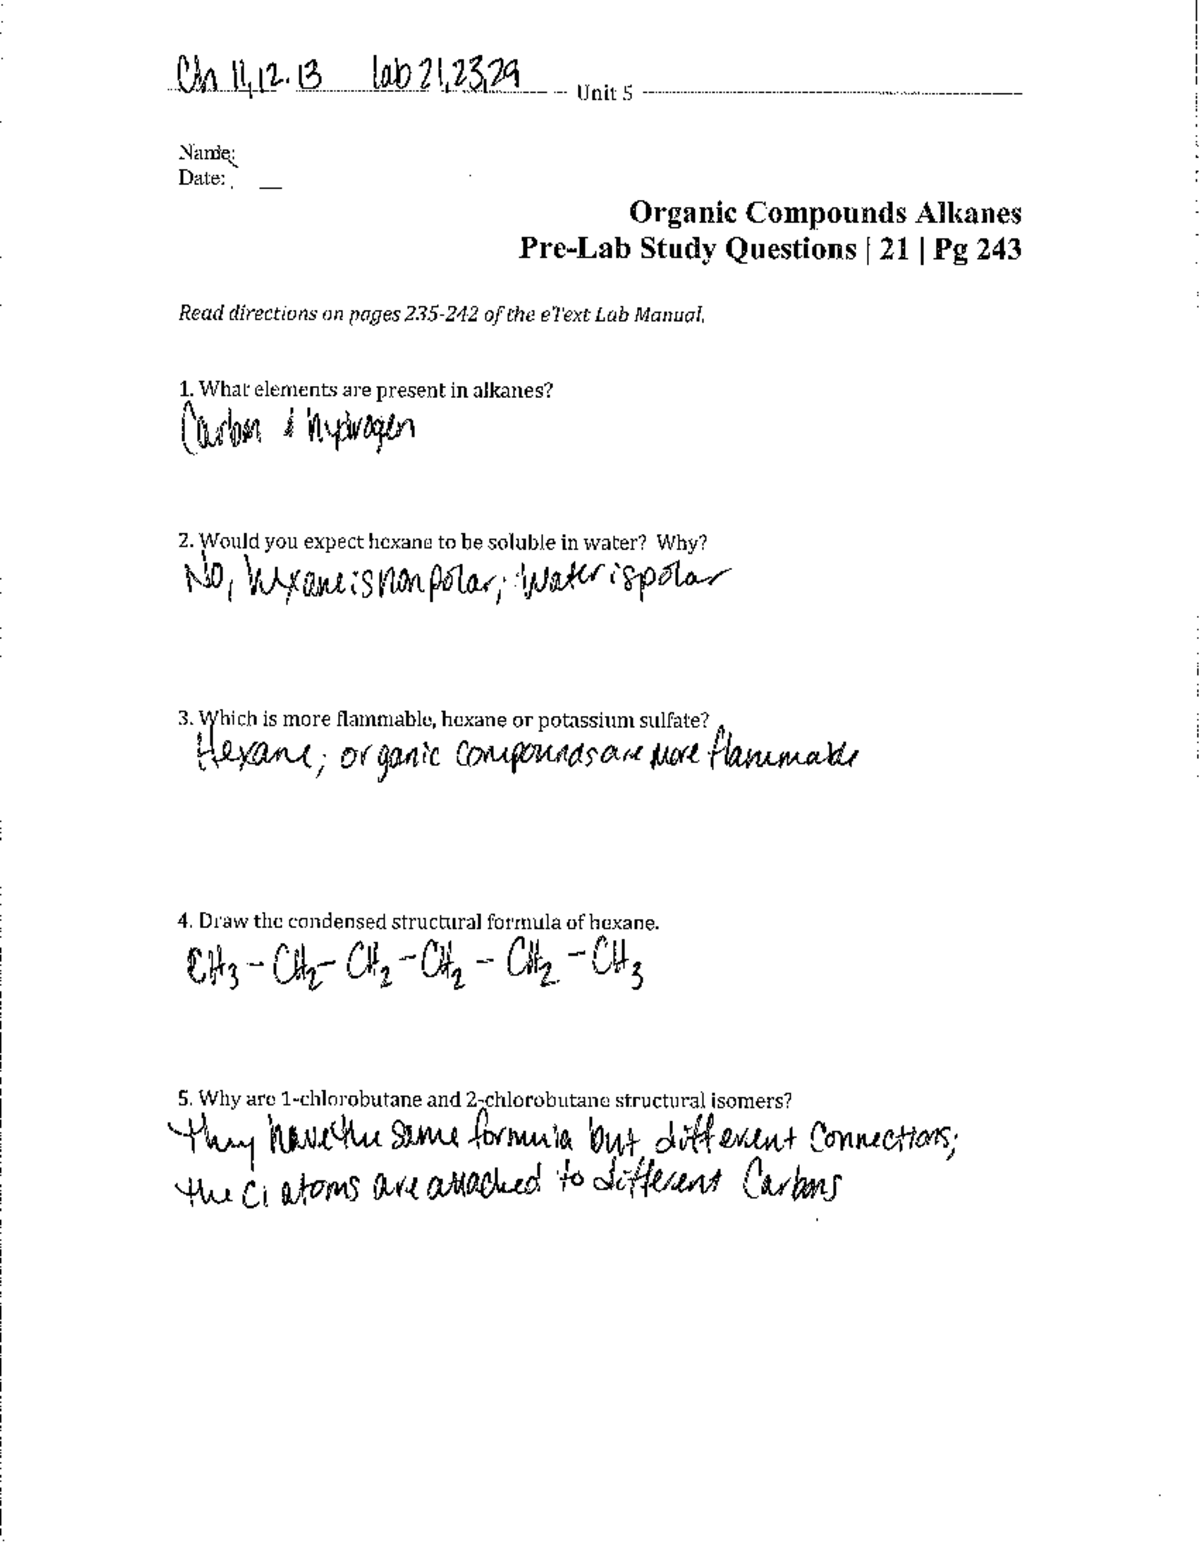 Ch 11,12.13 lab 21,23,29
Unit 5
Name:
Date:
Organic Compounds Alkanes
Pre-Lab Study Questions | 21 | Pg 243
Read directions on pages 235-242 of the eText Lab Manual.
1. What elements are present in alkanes?
Carbon & hydrogen
2. Would you expect hexane to be soluble in water? Why?
No, hexane is nonpolar; water is polar
3. Which is more flammable, hexane or potassium sulfate?
Hexane; organic compounds are more flammable
4. Draw the condensed structural formula of hexane.
CH3 - CH2 - CH2 - CH2 - CH2 - CH3
5. Why are 1-chlorobutane and 2-chlorobutane structural isomers?
they have the same formula but different connections;
the Cl atoms are attached to different Carbons